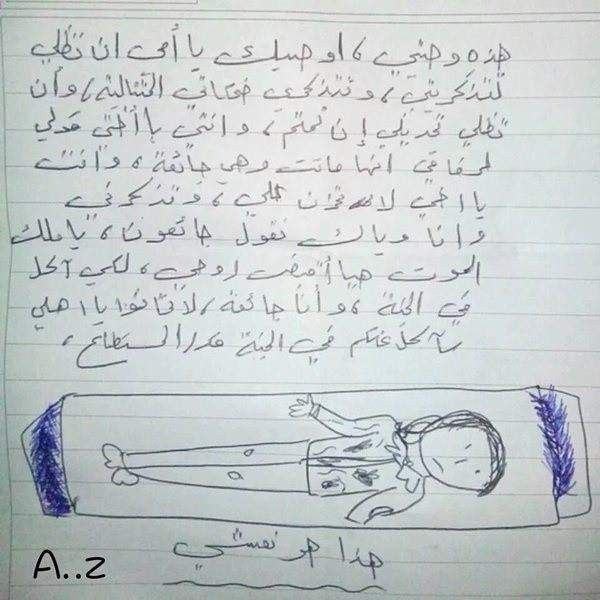 هذه وصيتي، اوصيك يا أمي ان تظلي
تتذكريني، وتتذكري ضحكاتي المتتالية، وأن
تظلي تحديقي إن نمتم، وانتي يا أختي قولي
لرفاقي انها ماتت وهي جائعة، وانت
يا اخي لا تحزن علي، وتذكرني
وانا وياك نقول جائعون، يا ملك
الموت هيا أقبض روحي، لكي آكل
في الجنة، وأنا جائعة، لا تخافوا يا اهلي
سآكل عنكم في الجنة قدر المستطاع،
هذا هو نعشي
A..z